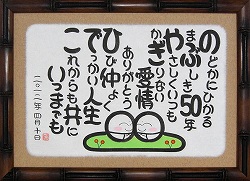 のどかにひかる
まぶしき50年
やさしくいつも
かぎりない
愛情
ありがとう
ひび仲よく
でっかい人生
これからも共に
いつまでも
二〇一二年四月十日